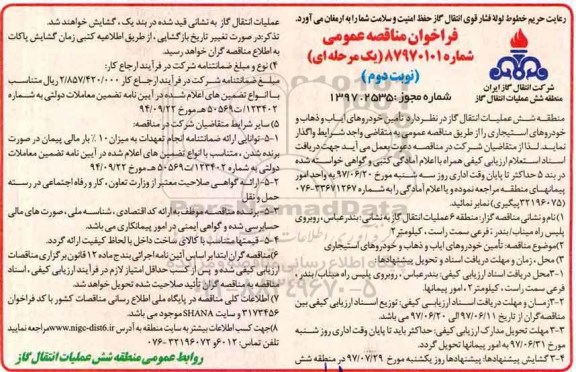 رعایت حریم خطوط لوله فشار قوی انتقال گاز حفظ امنیت و سلامت شما را به ارمغان می آورد.
فراخوان مناقصه عمومی
شماره ۸۷۹۷۰۱۰۱ (یک مرحله ای)
(نوبت دوم)
شماره مجوز: ۱۳۹۷.۲۵۳۵
شرکت انتقال گاز ایران
منطقه شش عملیات انتقال گاز
منطقه شش عملیات انتقال گاز در نظر دارد تامین خودروهای ایاب و ذهاب و
خودروهای استیجاری را از طریق مناقصه عمومی به متقاضی واجد شرایط واگذار
نماید. لذا از متقاضیان شرکت در مناقصه دعوت بعمل می آید جهت دریافت
اسناد استعلام ارزیابی کیفی همراه با اعلام آمادگی کتبی و گواهی خواسته شده
در بند ۵ حداکثر تا پایان وقت اداری روز سه شنبه مورخ ۹۷/۰۶/۲۰ به واحد امور
پیمانهای منطقه مراجعه نموده و یا اعلام آمادگی را به شماره ۳۳۶۷۱۲۶۷-۰۷۶
(۳۲۱۹۶۰۷۵ پیگیری) نمابر نمائید.
۱) نام و نشانی مناقصه گزار: منطقه ۶ عملیات انتقال گاز به نشانی: بندرعباس، روبروی
پلیس راه میناب/بندر، فرعی سمت راست، کیلومتر ۲
۲) موضوع مناقصه: تأمین خودروهای ایاب و ذهاب و خودروهای استیجاری
۳) محل، زمان و مهلت دریافت اسناد و تحویل پیشنهادها
۱-۳ محل دریافت اسناد ارزیابی کیفی: بندرعباس، روبروی پلیس راه میناب/بندر،
فرعی سمت راست، کیلومتر ۲، امور پیمانها.
۲-۳ زمان و مهلت دریافت اسناد ارزیابی کیفی: توزیع اسناد ارزیابی کیفی بین
مناقصه گران از تاریخ ۹۷/۰۶/۱۱ الی ۹۷/۰۶/۲۰ می باشد.
۳-۳ مهلت تحویل مدارک ارزیابی کیفی: حداکثر باید تا پایان وقت اداری روز شنبه
مورخ ۹۷/۰۶/۳۱ به امور پیمانها تحویل گردد.
۴-۳ گشایش پیشنهادها: پیشنهادها روز یکشنبه مورخ ۹۷/۰۷/۲۹ در منطقه شش
عملیات انتقال گاز به نشانی قید شده در بند یک، گشایش خواهند شد.
تذکر: در صورت تغییر تاریخ بازگشایی، از طریق اطلاعیه کتبی زمان گشایش پاکات
به اطلاع مناقصه گران خواهد رسید.
۴) نوع و مبلغ ضمانتنامه شرکت در فرآیند ارجاع کار:
مبلغ ضمانتنامه شرکت در فرآیند ارجاع کار ۲/۸۵۷/۴۲۰/۰۰۰ ریال متناسب
با انواع تضمین های اعلام شده در آیین نامه تضمین معاملات دولتی به شماره
۱۲۳۴۰۲/ت۵۰۶۵۹ هـ مورخ ۹۴/۰۹/۲۲
۵) سایر شرایط متقاضیان شرکت در مناقصه:
۱-۵ توانایی ارائه ضمانتنامه انجام تعهدات به میزان ۱۰٪ بار مالی پیمان در صورت
برنده شدن، متناسب با انواع تضمین های اعلام شده در آیین نامه تضمین معاملات
دولتی به شماره ۱۲۳۴۰۲/ت۵۰۶۵۹ هـ مورخ ۹۴/۰۹/۲۲
۲-۵ ارائه گواهی صلاحیت معتبر از وزارت تعاون، کار و رفاه اجتماعی در رسته
حمل و نقل
۳-۵ برنده مناقصه موظف به ارائه کد اقتصادی، شناسه ملی، صورت های مالی
حسابرسی شده و گواهی ایمنی در امور پیمانکاری می باشد.
۴-۵ قیمتها متناسب با کالای ساخت داخل با لحاظ کیفیت ارائه گردد.
۶) مناقصه گران ابتدا بر اساس آئین نامه اجرائی بند ج ماده ۱۲ قانون برگزاری مناقصات
ارزیابی کیفی شده و پس از کسب حداقل امتیاز لازم در فرآیند ارزیابی کیفی، اسناد
مناقصه به مناقصه گران تأئید صلاحیت شده تحویل خواهد شد.
۷) اطلاعات کلی مناقصه در پایگاه ملی اطلاع رسانی مناقصات کشور با کد فراخوان
۳۱۷۳۴۵۶ و سایت SHANA موجود می باشد.
۸) جهت کسب اطلاعات بیشتر به سایت منطقه به آدرس www.nigc-dist6.ir مراجعه نمایید
تلفن تماس: ۶۰۱۲ و ۳۲۱۹۶۰۷۲-۰۷۶
روابط عمومی منطقه شش عملیات انتقال گاز